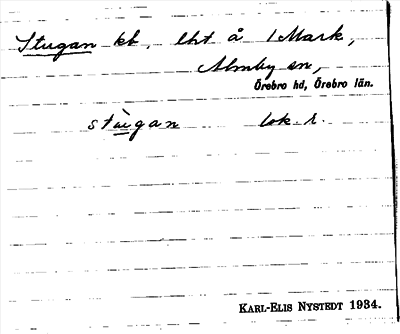 Stugan kt, lht å 1 Mark,
Almby sn,
Örebro hd, Örebro län.
stùgan lok. r.
KARL-ELIS NYSTEDT 1934.